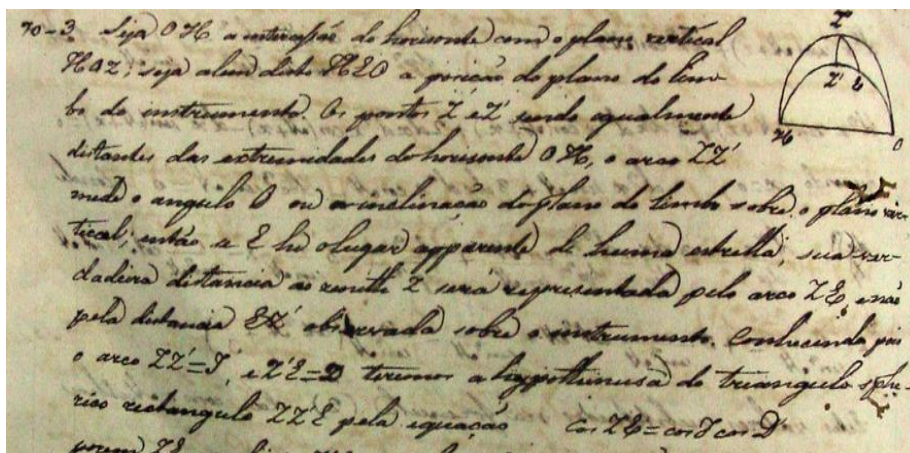 70-3 Seja OH a intercepsão do horisonte com o plano vertical
HOZ; seja alem disto HEO a posicão do plano do lim-
bo do instrumento. Os pontos Z e Z' sendo igualmente
distantes das extremidades do horisonte OH, o arco ZZ'
mede o angulo O ou a inclinacão do plano do limbo sobre o plano ver-
tical; então se E he o lugar apparente de huma estrella, sua ver-
dadeira distancia ao zenith Z será representada pelo arco ZE, e não
pela distancia EZ' observada sobre o instrumento. Conhecendo pois
o arco ZZ'=I, e Z'E=D teremos a hypothenusa do triangulo sphe-
rico rectangulo ZZ'E pela equacão cos ZE = cos I cos D
porem ZE
Z
Z' E
H O